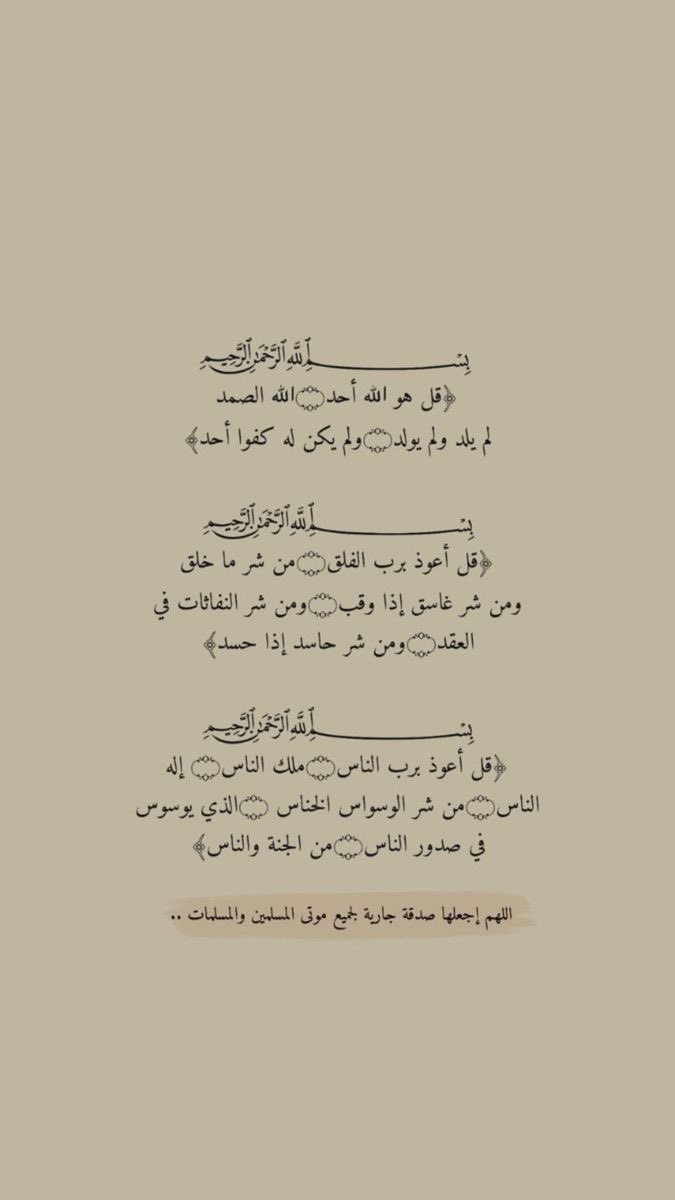 بِسْمِ ٱللَّهِ ٱلرَّحْمَٰنِ ٱلرَّحِيمِ
﴿قل هو الله أحد۝الله الصمد
لم يلد ولم يولد۝ولم يكن له كفوا أحد﴾
بِسْمِ ٱللَّهِ ٱلرَّحْمَٰنِ ٱلرَّحِيمِ
﴿قل أعوذ برب الفلق۝من شر ما خلق
ومن شر غاسق إذا وقب۝ومن شر النفاثات في
العقد۝ومن شر حاسد إذا حسد﴾
بِسْمِ ٱللَّهِ ٱلرَّحْمَٰنِ ٱلرَّحِيمِ
﴿قل أعوذ برب الناس۝ملك الناس۝ إله
الناس۝من شر الوسواس الخناس ۝الذي يوسوس
في صدور الناس۝من الجنة والناس﴾
اللهم إجعلها صدقة جارية لجميع موتى المسلمين والمسلمات ..